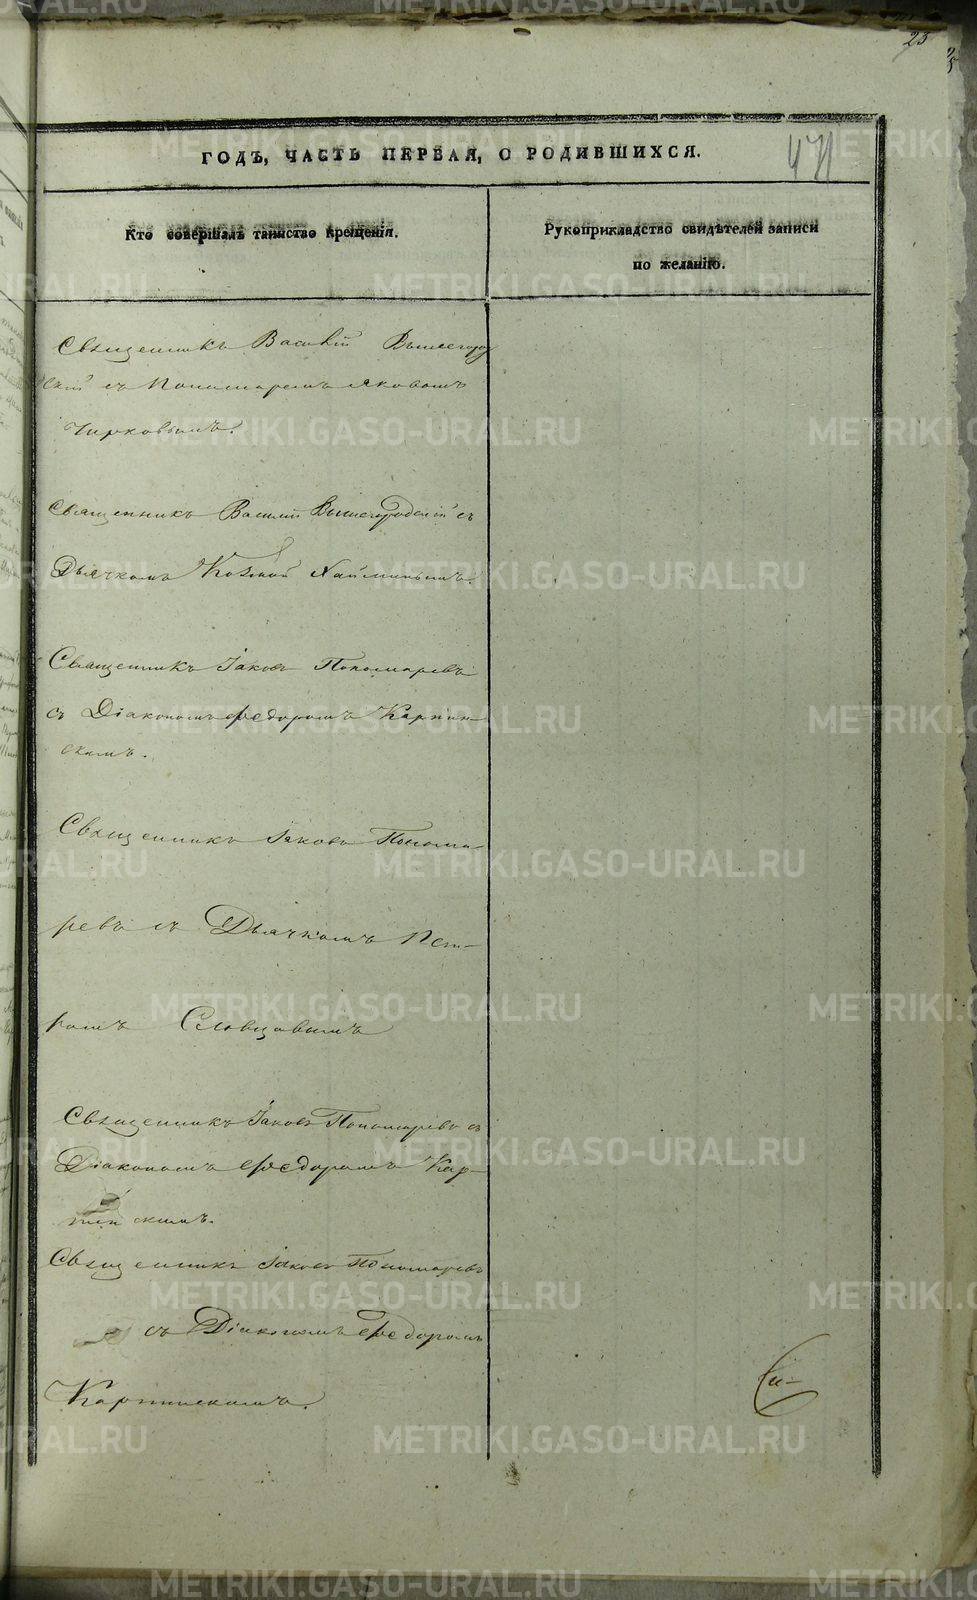 25
471
ГОДЪ, ЧАСТЬ ПЕРВАЯ, О РОДИВШИХСЯ.
Кто совершалъ таинство крещенія.
Рукоприкладство свидѣтелей записи
по желанію.
Священникъ Василій Вышегород
скій съ Пономаремъ Яковомъ
Чирковымъ.
Священникъ Василій Вышегородскій съ
Дьячкомъ Козмой
Священникъ Іаковъ Пономаревъ
съ Діакономъ Федоромъ Карпин-
скимъ.
Священникъ Іаковъ Понома-
ревъ съ Дьячкомъ Пет-
ромъ Словцовымъ
Священникъ Іаковъ Пономаревъ съ
Діакономъ Федоромъ Кар-
пинскимъ.
Священникъ Іаковъ Пономаревъ
съ Діакономъ Федоромъ
Карпинскимъ.
METRIKI.GASO-URAL.RU